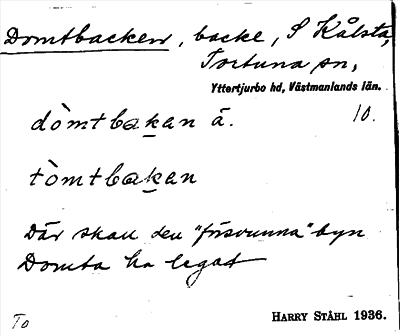 Domtbacken, backe, S Kålsta,
Tortuna sn,
Yttertjurbo hd, Västmanlands län.
10.
dòmtbakan ä.
tòmtbakan
Där skall den "försvunna" byn
Domta ha legat
To
HARRY STÅHL 1936.